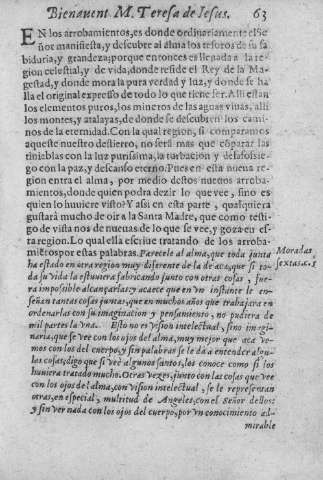 Bienauent. M. Teresa de Iesus. 63
EN los arrobamientos, es donde ordinariamente el Se
ñor manifiesta, y descubre al alma los tesoros de su sa
biduria, y grandeza; porque entonces es llegada a la re-
gion celestial, y de vida, donde reside el Rey de la Ma-
gestad, y donde mora la pura verdad y luz, y donde se ha
lla el original expresso de todo lo que tiene ser. Alli estan
los elementos puros, los mineros de las aguas viuas, alli
los montes, y atalayas, de donde se descubren los cami-
nos de la eternidad. Con la qual region, si comparamos
aqueste nuestro destierro, no será mas que cōparar las
tinieblas con la luz purissima, la turbacion y desassossie-
go con la paz, y descanso eterno. Pues en esta nueua re-
gion entra el alma, por medio destos nueuos arroba-
mientos, donde quien podra dezir lo que vee, sino es
quien lo huuiere visto? Y assi en esta parte, qualquiera
gustará mucho de oir a la Santa Madre, que como testi-
go de vista nos de nueuas de lo que se vee, y goza en es-
ta region. Lo qual ella escriue tratando de los arroba-
mientos por estas palabras. Parecele al alma, que toda junta
ha estado en otra region muy diferente de la de acà, que si to-
da su vida la estuuiera fabricando junto con otras cosas, fue-
ra impossible alcançarlas: y acaece que en vn instante le en-
señan tantas cosas juntas, que en muchos años que trabajara en
ordenarlas con su imaginacion y pensamiento, no pudiera de
mil partes la vna. Esto no es vision intelectual, sino imagi-
naria, que se vee con los ojos del alma, muy mejor que acà ve-
mos con los del cuerpo, y sin palabras se le da a entender algu-
las cosas; digo que si vee algunos santos, los conoce como si los
huuiera tratado mucho. Otras vezes, junto con las cosas que vee
con los ojos del alma, con vision intelectual, se le representan
otras, en especial, multitud de Angeles, con el Señor dellos:
y sin ver nada con los ojos del cuerpo, por vn conocimiento ad-
mirable
Moradas
sextas. c. 5